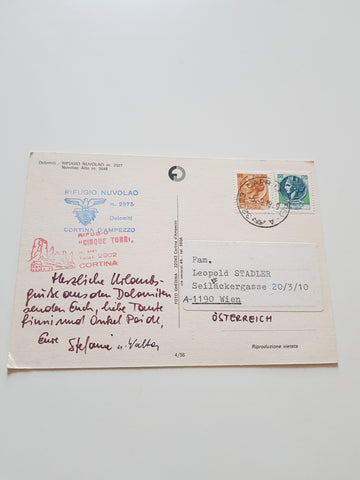 Dolomiti - RIFUGIO NUVOLAO m. 2575
Nuvolao Alto m. 2648
RIFUGIO NUVOLAO
m. 2575
Dolomiti
CORTINA D'AMPEZZO
RIFUGIO
"CINQUE TORRI"
CORTINA
Herzliche Urlaubs-
grüße aus den Dolomiten
senden Euch, liebe Tante
und Onkel
Eure Stefanie u. Walter
FOTO GHEDINA - 32043 Cortina d'Ampezzo
4/56
Fam.
Leopold STADLER
Seilackergasse 20/3/10
A-1190 Wien
ÖSTERREICH
Riproduzione vietata